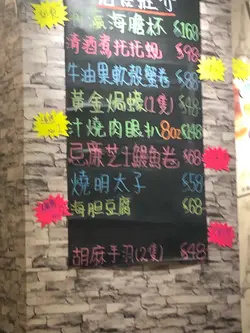 海膽杯 $168
清酒煮托托蜆 $98
牛油果軟殼蟹卷 $88
黃金焗蠔(2隻) $48
汁燒肉眼扒 8oz $148
芝士鰻魚卷 $68
燒明太子 $58
海胆豆腐 $68
胡麻手羽(2隻) $48